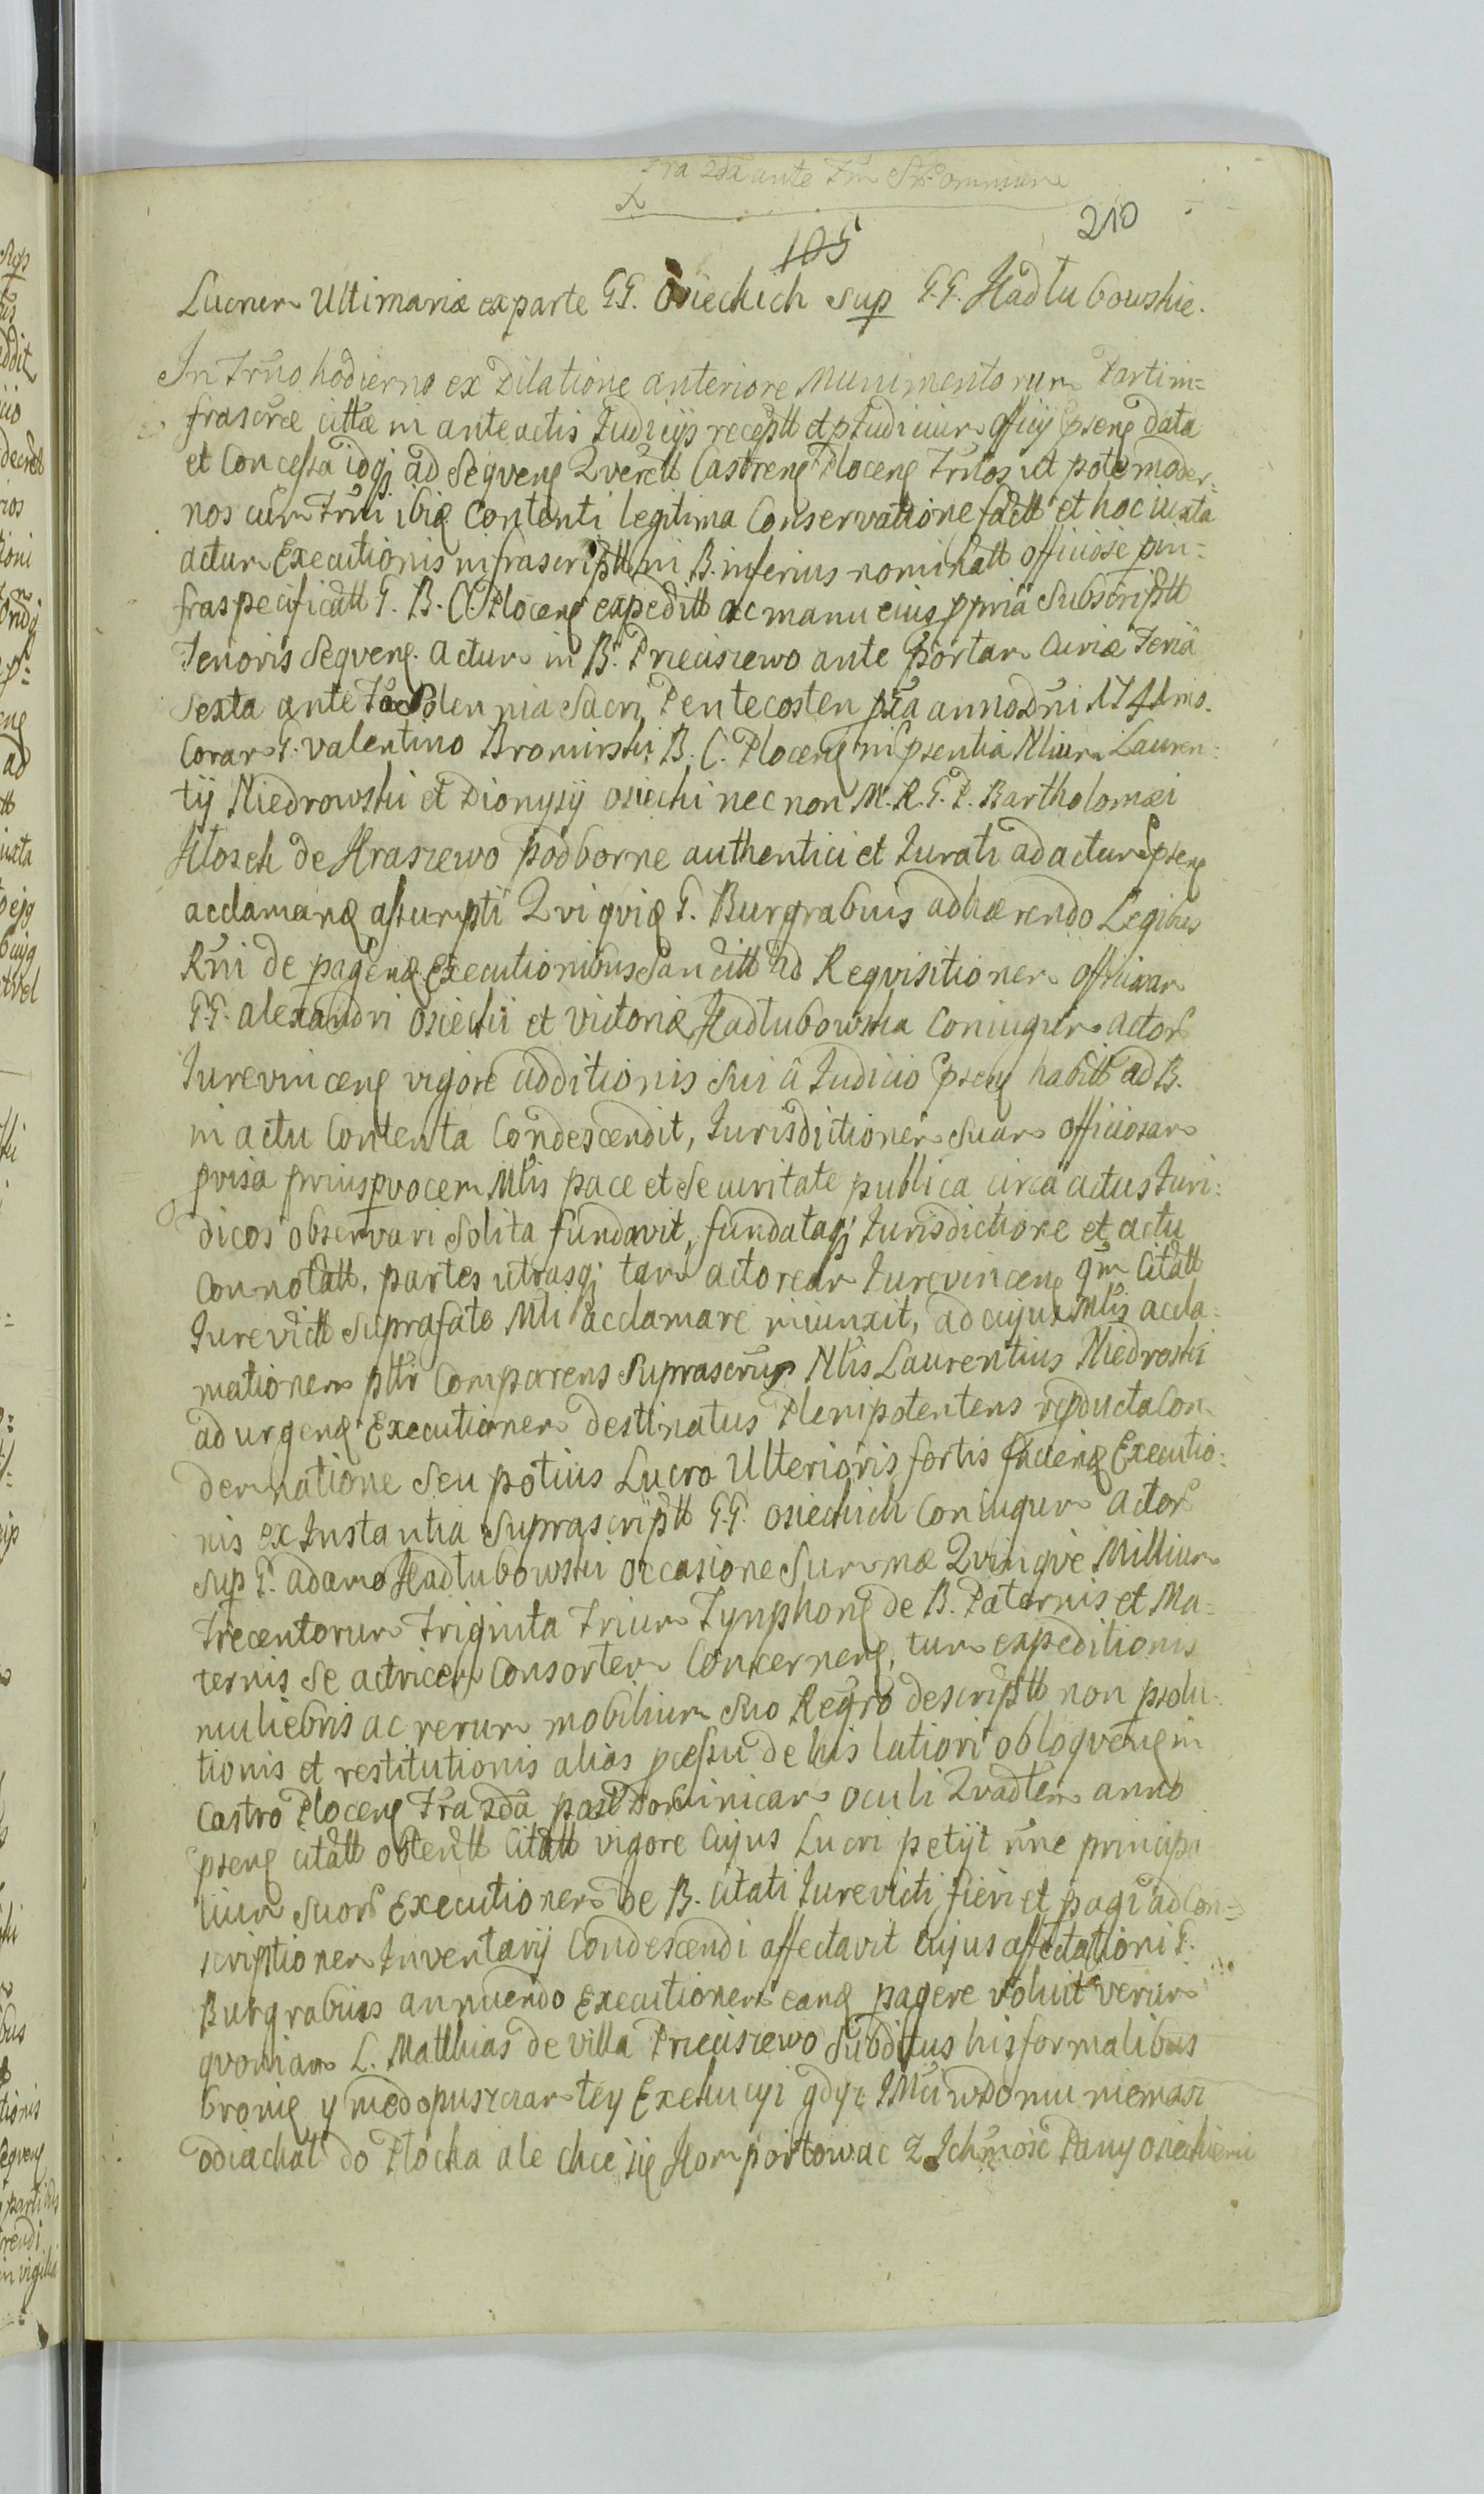 Fra 2da ante Fm S.
X
105
210
Lucrum Ultimariæ ex parte GG. Osieckich Sup GG. Kadłubowskie.
In Trno hodierno ex Dilatione anteriore Munimentorum Partim=
frascræ cittæ in anteactis Judicijs receptt et p Judicium Officij psens data
et Concessa idqj ad Seqvens Qverett Castrens Plocens Trnos ut pote moder=
nos cum Trni ibiq Contenti legitima Conservatione factt et hoc iuxta
actum Executionis infrascriptt in B. inferius nominatt officiose p in=
fraspecificatt G. B. C. Plocens expeditt ac manu eius ppria Subscriptt
Tenoris Seqvens. Actum in B. Prieciszewo ante Portam Curiæ Feria
Sexta ante Fta Solennia Sacri Pentecosten pxa anno Dni 1741mo.
Coram G. Valentino Bromirski B. C. Plocens in psentia Nlium Lauren=
tij Niedrowski et Dionysij Osiecki nec non M. R. G. P. Bartholomæi
Kłosek de Kraszewo podborne authentici et Jurati ad actum psens
acclamanq assumpti Qvi qviq G. Burgrabius adhærendo Legibus
Rni de pagenq Executionibus Sancitt ad Reqvisitionem officiosam
GG. Alexandri Osiecki et Victoriæ Kadłubowska Coniugum Actor
Jurevincens vigore additionis Sui â Judicio psens habitt ad B.
in actu Contenta Condescendit, Jurisditionem Suam officiosam
pvisa prius p vocem Mlis pace et Securitate publica circa actus Juri=
dicos observari Solita fundavit, fundataqj Jurisdictione et actu
Connotatt. partes utrasqj tam actoream Jurevincens qm Citatt
Jurevictt Suprafato Mli acclamare iniunxit, ad cujus Mlis accla=
mationem pttr Comparens Suprascrus Nlis Laurentius Niedroski
ad urgenq Executionem destinatus Plenipotentens reproducta Con=
demnatione Seu potius Lucro Ulterioris fortis faciens Executio=
nis ex Instantia Suprascriptt GG. Osieckich Coniugum Actor
Sup G. Adamo Kadłubowski occasione Summæ Qvinqve Millium
Trecentorum Triginta Trium Tynphons de B. Paternis et Ma=
ternis Se actricem Consortem Concernens, tum expeditionis
muliebris ac rerum mobilium Suo Regro descriptt non psolu=
tionis et restitutionis alias pcessu de his latiori obloqvens in
Castro Plocens Fra 2da post Dominicam Oculi Qvadlem anno
psens citatt obtentt Citatt vigore Cujus Lucri petijt nne principa
lium Suor Executionem de B. Citati Jurevicti fieri et pagi ad Con=
scriptionem Inventarij Condescendi affectavit Cujus affectationi G.
Burgrabius annuendo Executionem eanq pagere voluit verum
qvoniam L. Matthias de villa Prieciszewo Subditus his formalibus
bronię y niedopuszczam tey Exekucyi gdyz IMci w Domu niemasz
odiachał do Płocka ale chce się Komportowac z Ichmosc Pany Osieckiemi